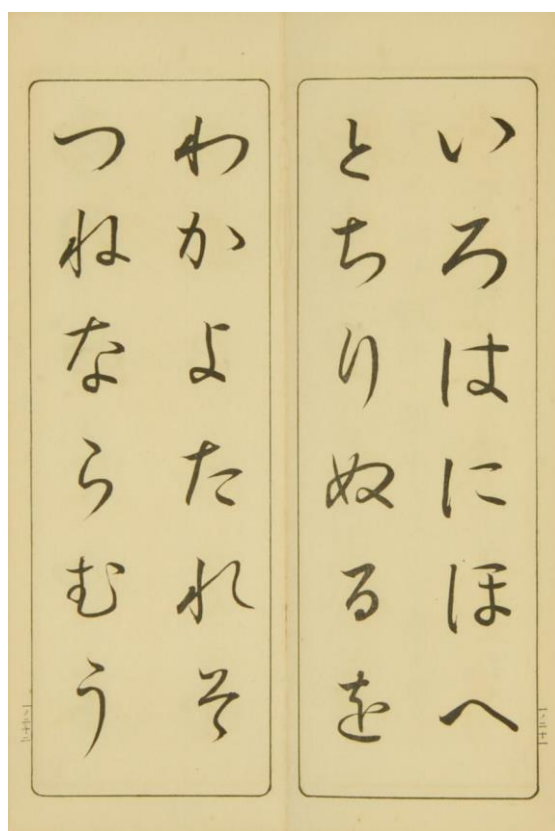 いろはにほへ
とちりぬるを
わかよたれそ
つねならむう